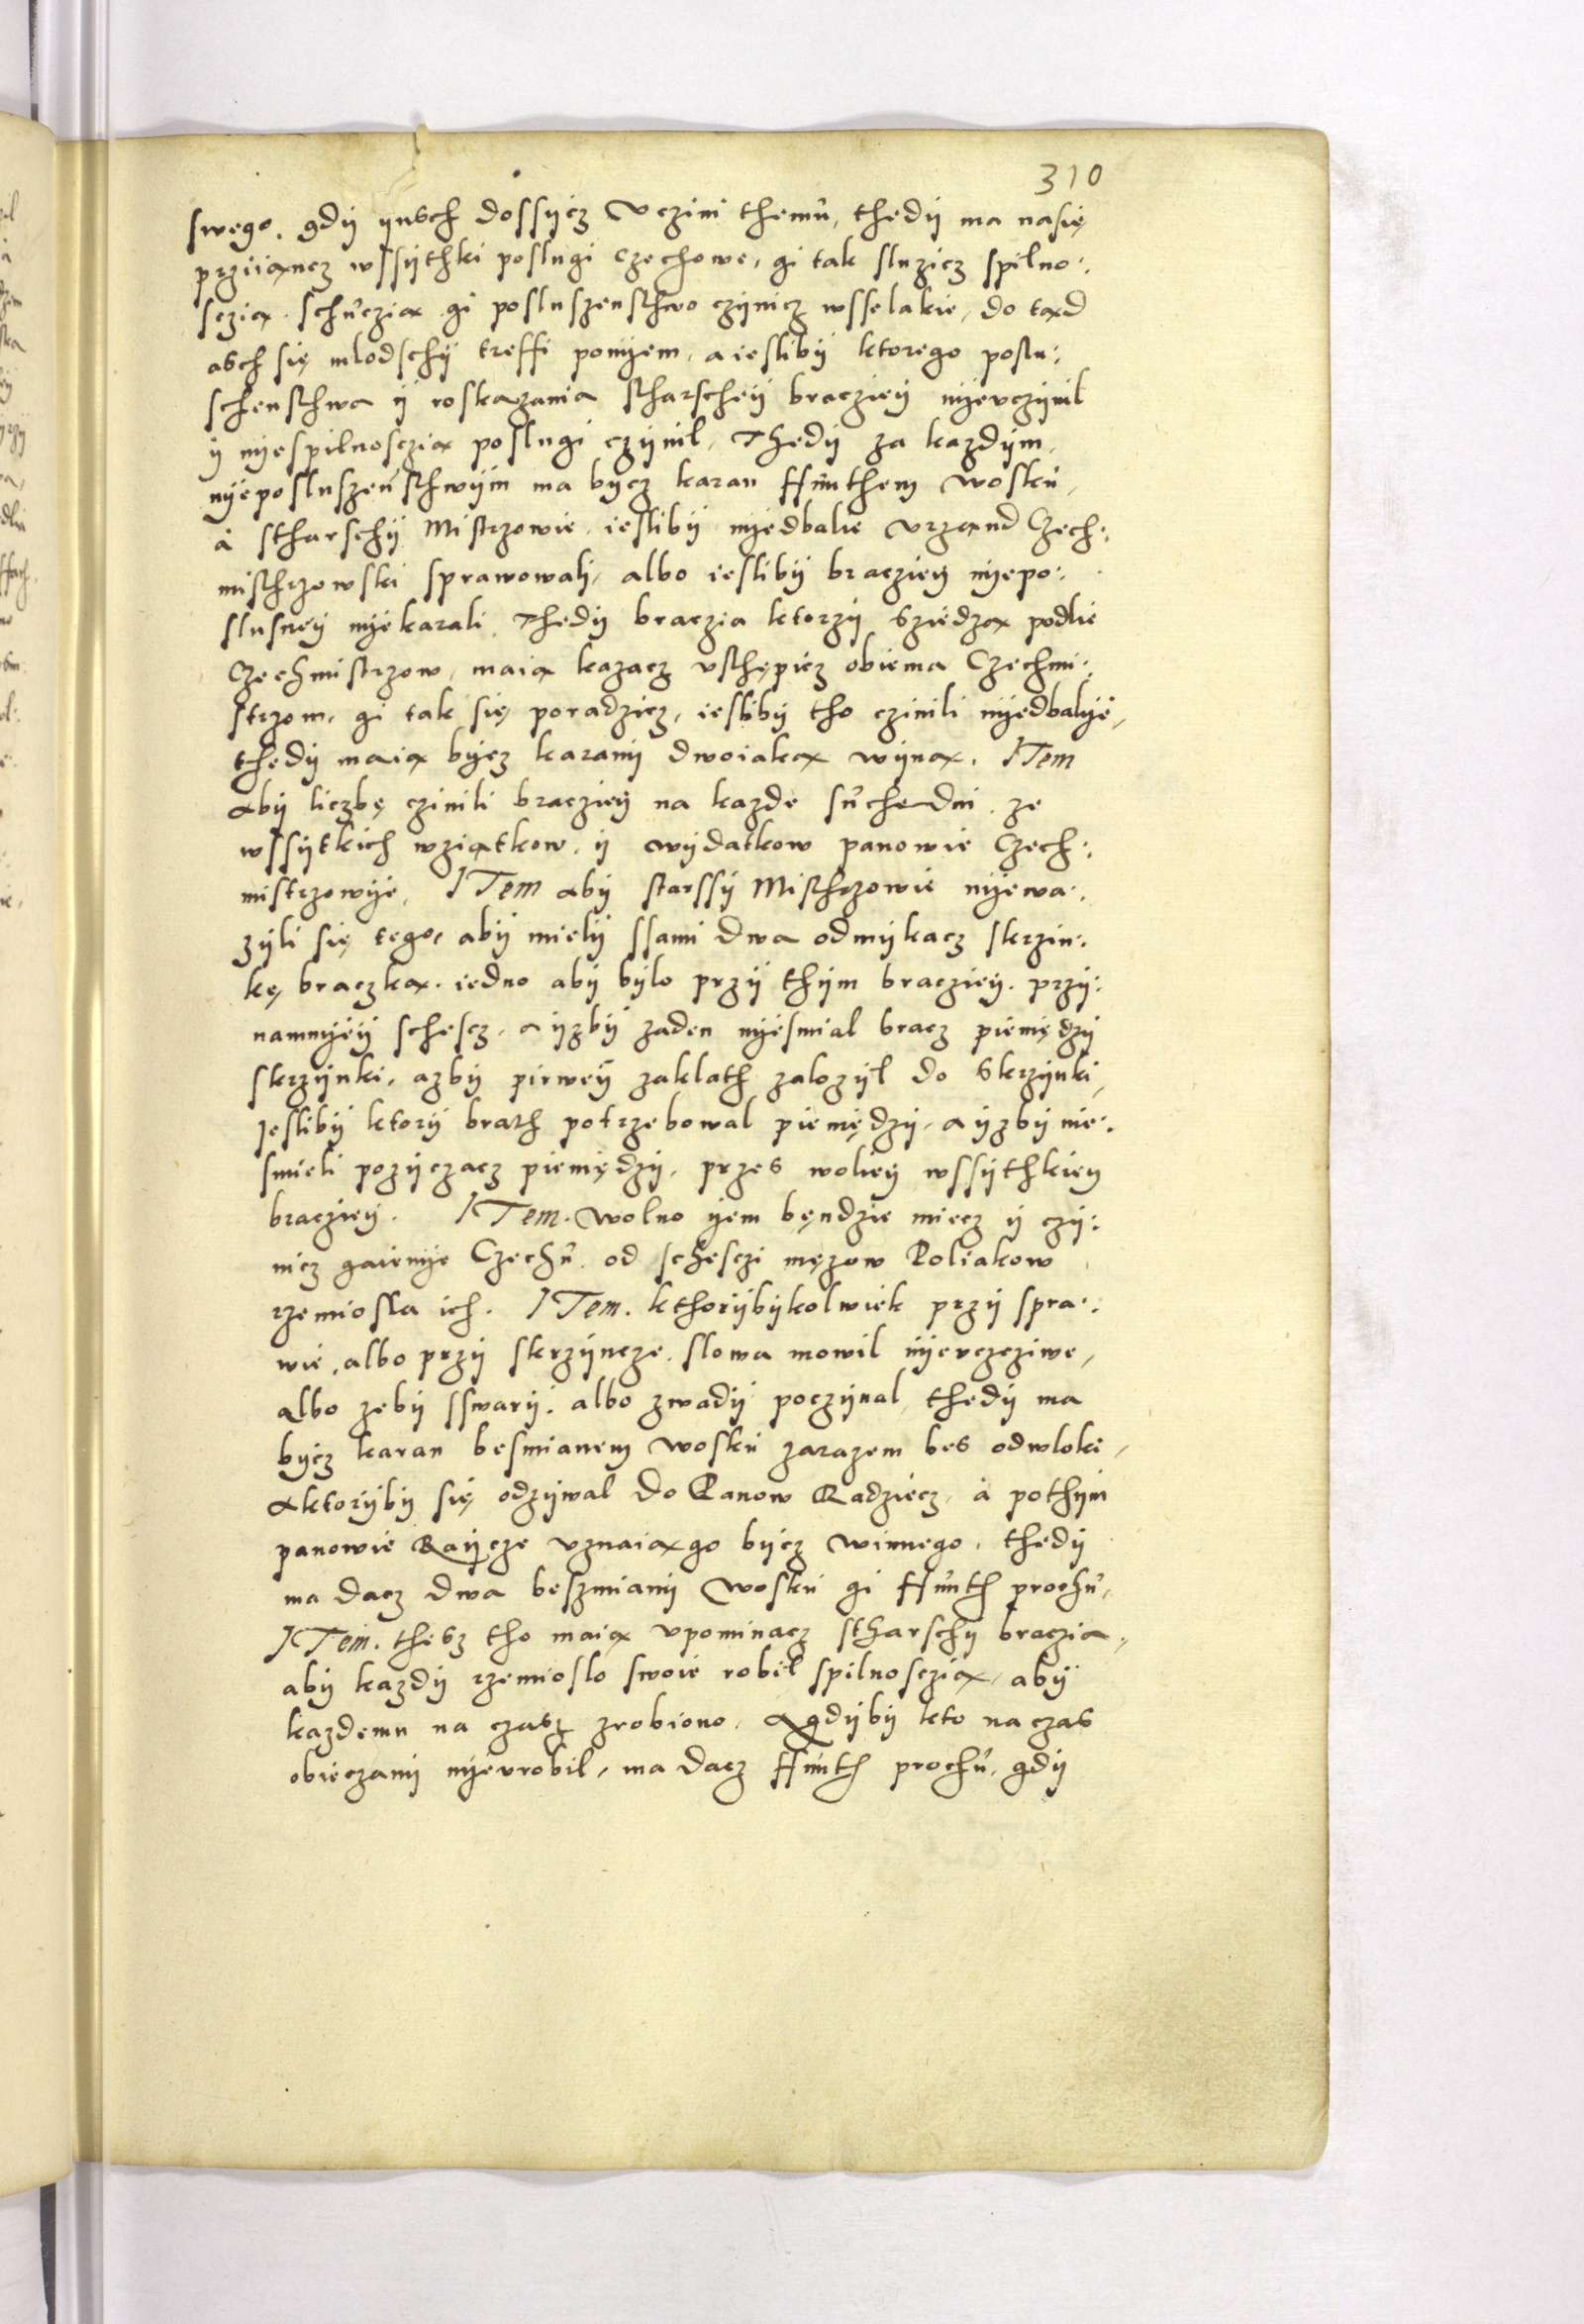 310
swego. gdÿ ÿusch dossÿcz Vczini themu, thedÿ ma nasię
prziiąncz wssÿthki poslugi czechowe, gi tak sluzicz spilno:
sczią. schuczią gi posluszenstwo czÿnicz wsselakie, do tąd
asch się mlodschÿ treffi ponÿem, a ieslibÿ ktorego poslu:
schenstwa ÿ roskazania stharscheÿ bracziey nÿevczÿnil
ÿ nÿespilnosczią poslugi czÿnil, Thedÿ za kazdÿm,
nÿeposluszenstwÿm ma bÿcz karan ffunthem Wosku,
à stharschÿ Mistrzowie ieslibÿ nÿedbalie vrząnd Czech:
misthrzowski sprawowalÿ, albo ieslibÿ braczieÿ nÿepo:
slusneÿ nÿekarali, Thedÿ braczia ktorzÿ sziedzą podlie
Czechmistrzow, maią kazacz vsthępicz obiema Czechmi:
strzom, gi tak się poradzicz, ieslibÿ tho czinili nÿedbalÿe,
thedÿ maią bÿcz karanÿ dwoiaką wÿną. ITem
abÿ liczbę czinili braczieÿ na kazde suchedni ze
wssÿtkich wziątkow ÿ wÿdatkow panowie Czech:
mistrzowÿe, ITem abÿ starssÿ Misthrzowie nÿewa:
zÿli się tego, abÿ mielÿ ssami dwa odmÿkacz skrzin:
kę braczką. iedno abÿ bÿlo przÿ thÿm braczieÿ. przÿ:
namnÿeÿ schescz, a ÿzbÿ zaden nÿesmial bracz pieniędzÿ
skrzÿnki, azbÿ pirweÿ zaklath zalozÿl do skrzÿnki,
Jeslibÿ ktorÿ brath potrzebowal pieniędzÿ, a ÿzbÿ nie:
smieli pozÿczacz pieniędzÿ, przes wolieÿ wssÿthkieÿ
braczieÿ. ITem. Wolno ÿem będzie miecz ÿ czÿ:
nicz gaienÿe Czechu od schesczi mężow Poliakow
rzemiosla ich. ITem. kthorÿbÿkolwiek przÿ spra:
wie, albo przÿ skrzÿncze slowa mowil nÿevczcziwe,
Albo zebÿ sswarÿ, albo zwadÿ poczÿnal, thedÿ ma
bÿcz karan besmianem Wosku zarazem bes odwloki,
A ktorÿbÿ się odzÿwal do Panow Radziecz, à pothÿm
panowie Raÿcze vznaią go bÿcz winnego, thedÿ
ma dacz dwa beszmianÿ Wosku gi ffunth prochu,
ITem. thesz tho maią vpominacz stharschÿ braczia,
abÿ kazdÿ rzemioslo swoie robil spilnosczią, abÿ
kazdemu na czasz zrobiono, A gdÿbÿ kto na czas
obieczanÿ nÿevrobil, ma dacz ffunth prochu, gdÿ